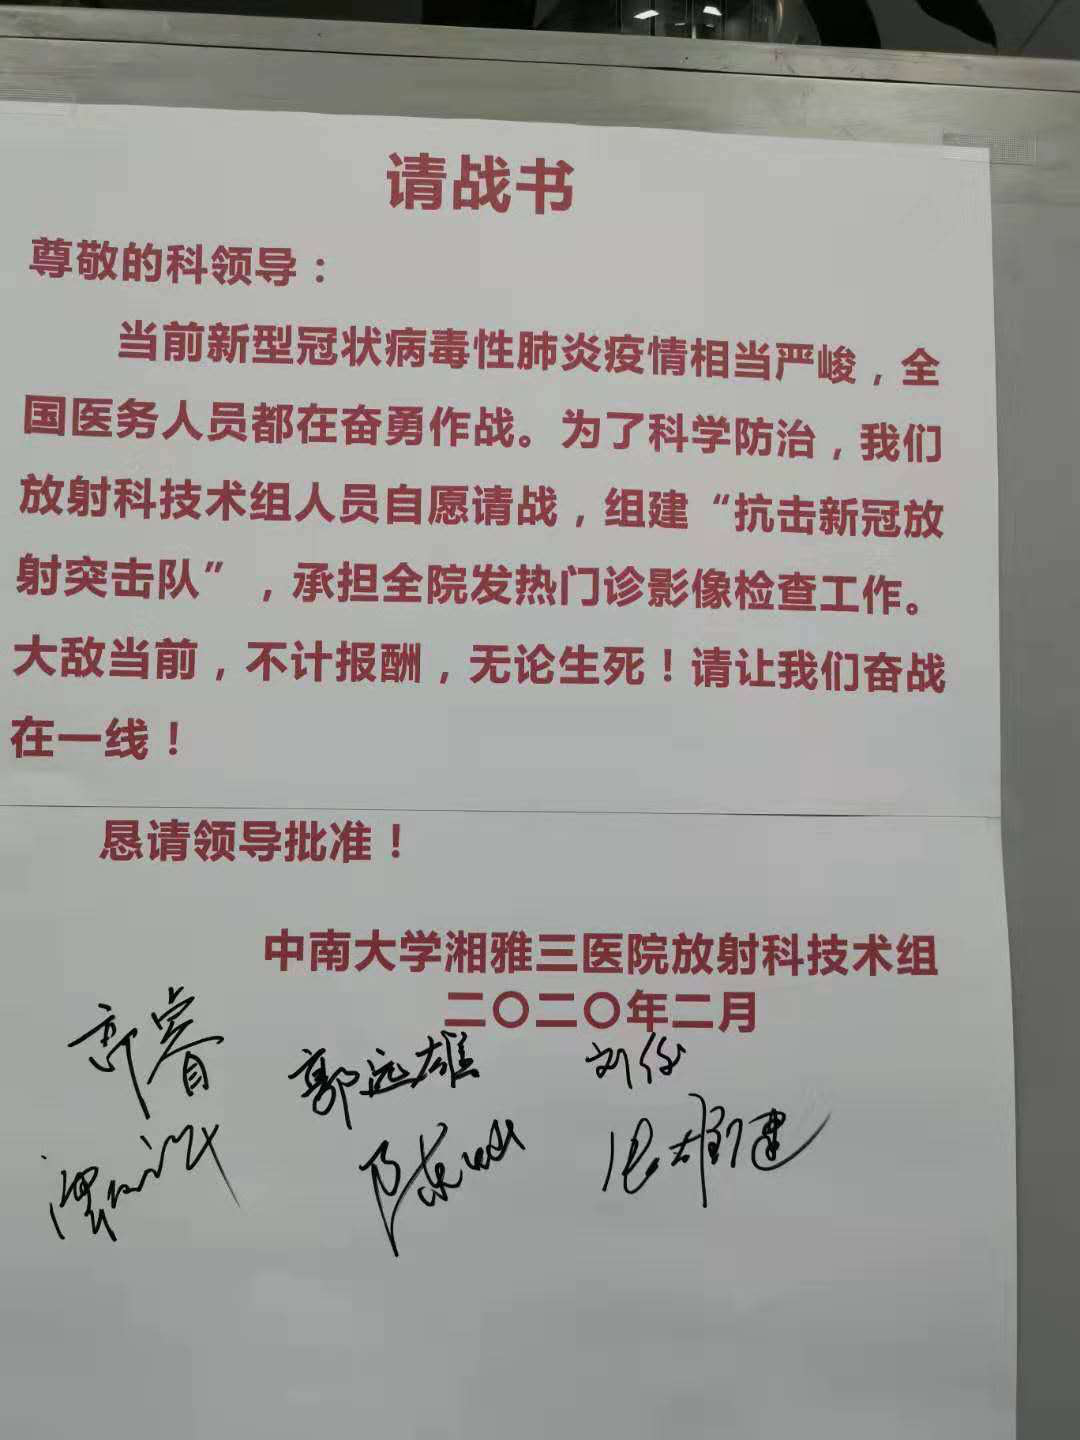 请战书
尊敬的科领导：
当前新型冠状病毒性肺炎疫情相当严峻，全
国医务人员都在奋勇作战。为了科学防治，我们
放射科技术组人员自愿请战，组建“抗击新冠放
射突击队”，承担全院发热门诊影像检查工作。
大敌当前，不计报酬，无论生死！请让我们奋战
在一线！
恳请领导批准！
中南大学湘雅三医院放射科技术组
二〇二〇年二月
郭远雄